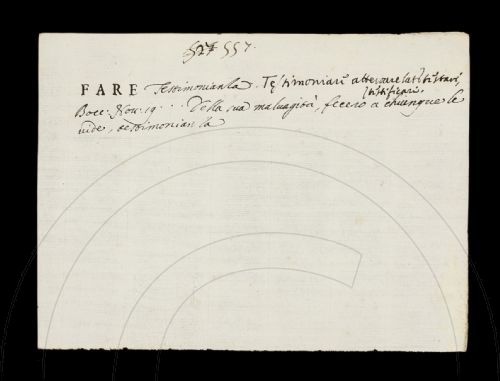 557.
FARE Testimonianza. Testimoniari
testificari.
Bocc. Nov. 19 . . . Della sua maluagità, fecero a chiunque le
vide, testimonianza